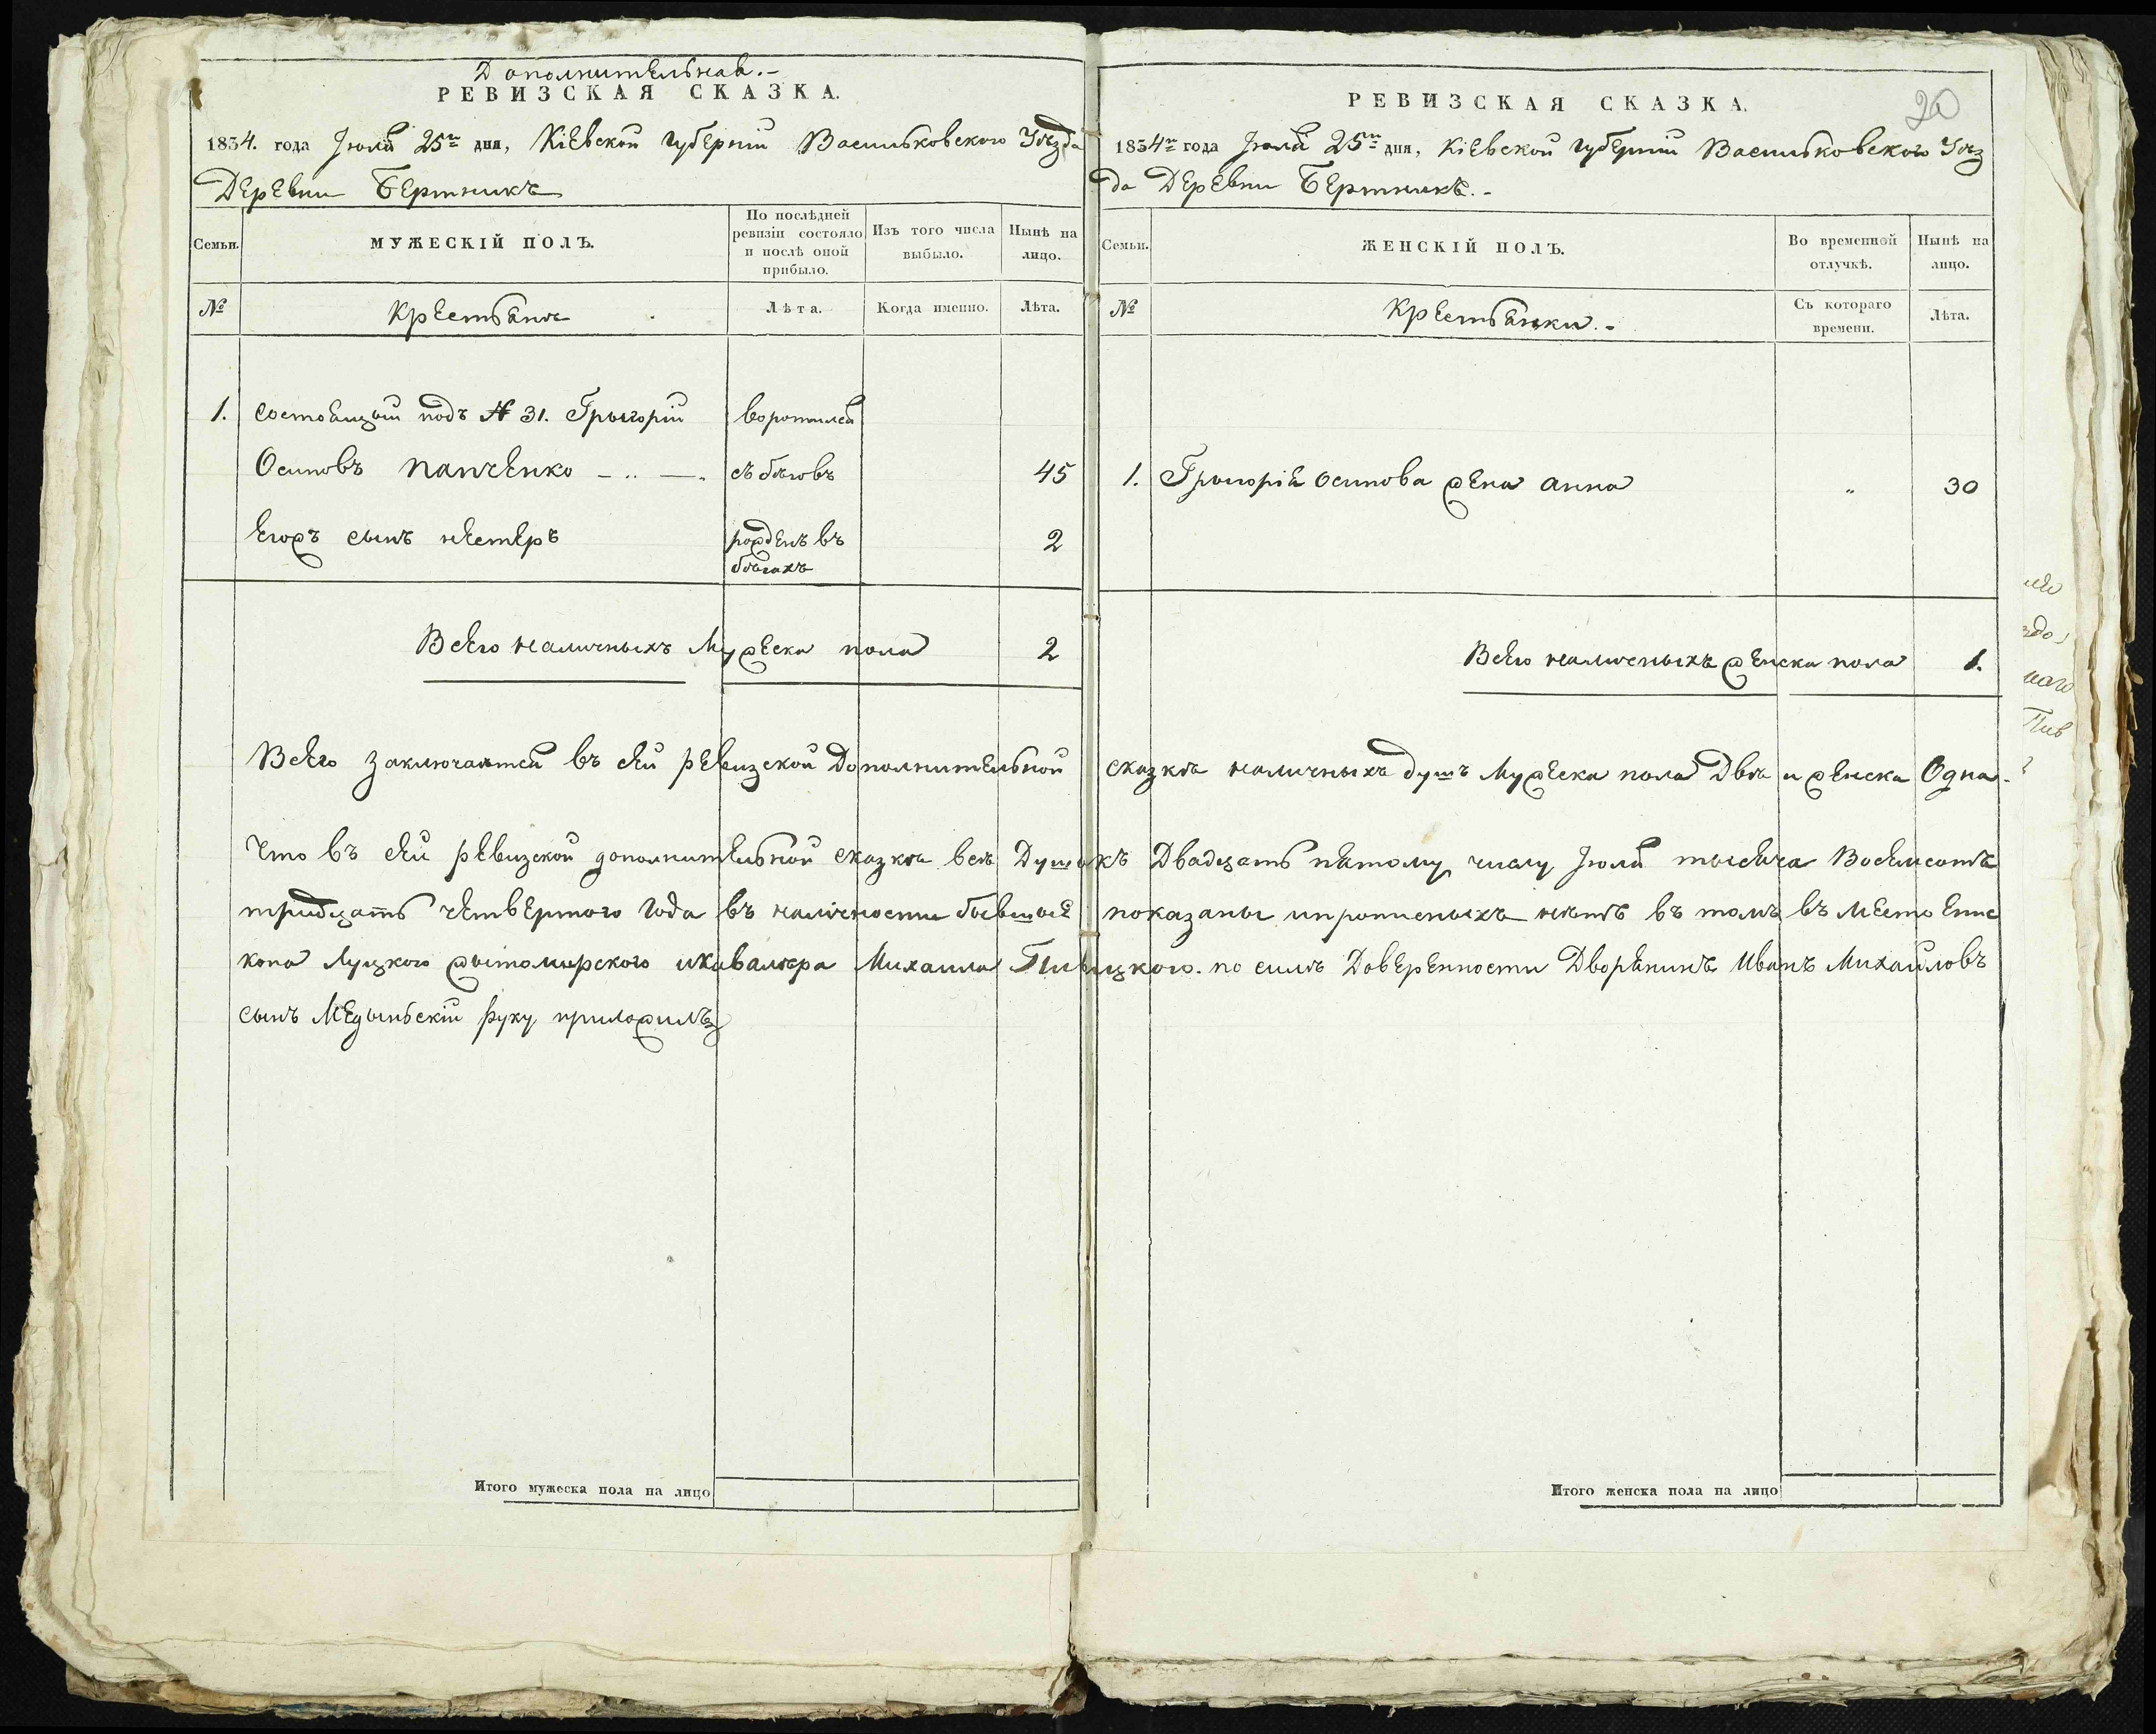 Дополнительная.-
РЕВИЗСКАЯ СКАЗКА.
1834. года Іюля 25го дня, Кіевской Губерніи Васильковского Уѣзда
Деревни Бертникъ
Семьи. МУЖЕСКІЙ ПОЛЪ. По послѣдней ревизіи состояло и послѣ оной прибыло. Изъ того числа выбыло. Нынѣ на лицо.
№ Крестьянъ Лѣта. Когда именно. Лѣта.
1. состоящый подъ № 31. Грыгорій воротился
Осиповъ Панченко съ бѣговъ 45
Егожъ сынъ Нестеръ рожденъ въ 2
бѣгахъ
Всего наличныхъ Мужеска пола 2
РЕВИЗСКАЯ СКАЗКА.
20
1834го года Іюля 25го дня, Кіевской Губерніи Васильковского Уѣз
да Деревни Бертникъ.-
Семьи. ЖЕНСКІЙ ПОЛЪ. Во временной отлучкѣ. Нынѣ на лицо.
№ Крестьянки.- Съ котораго времени. Лѣта.
1. Грыгорія Осипова жена Анна " 30
Всего наличныхъ женска пола 1.
Всего заключаится въ сей ревизской Дополнительной сказкѣ наличныхъ душъ Мужеска пола Двѣ и женска Одна.
Что въ сей ревизской дополнительной сказкѣ всѣ Души къ Двадцать пятому числу Іюля тысяча Восемсотъ
тридцать четвертого Года въ наличности бывшые показаны ипрописныхъ нѣтъ въ томъ въ Место Епис
копа Луцкого Житомирского икавалера Михаила Пивницкого. по силѣ Доверенности Дворянинъ Иванъ Михайловъ
сынъ Медыньскій руку приложилъ
Итого мужеска пола на лицо
Итого женска пола на лицо